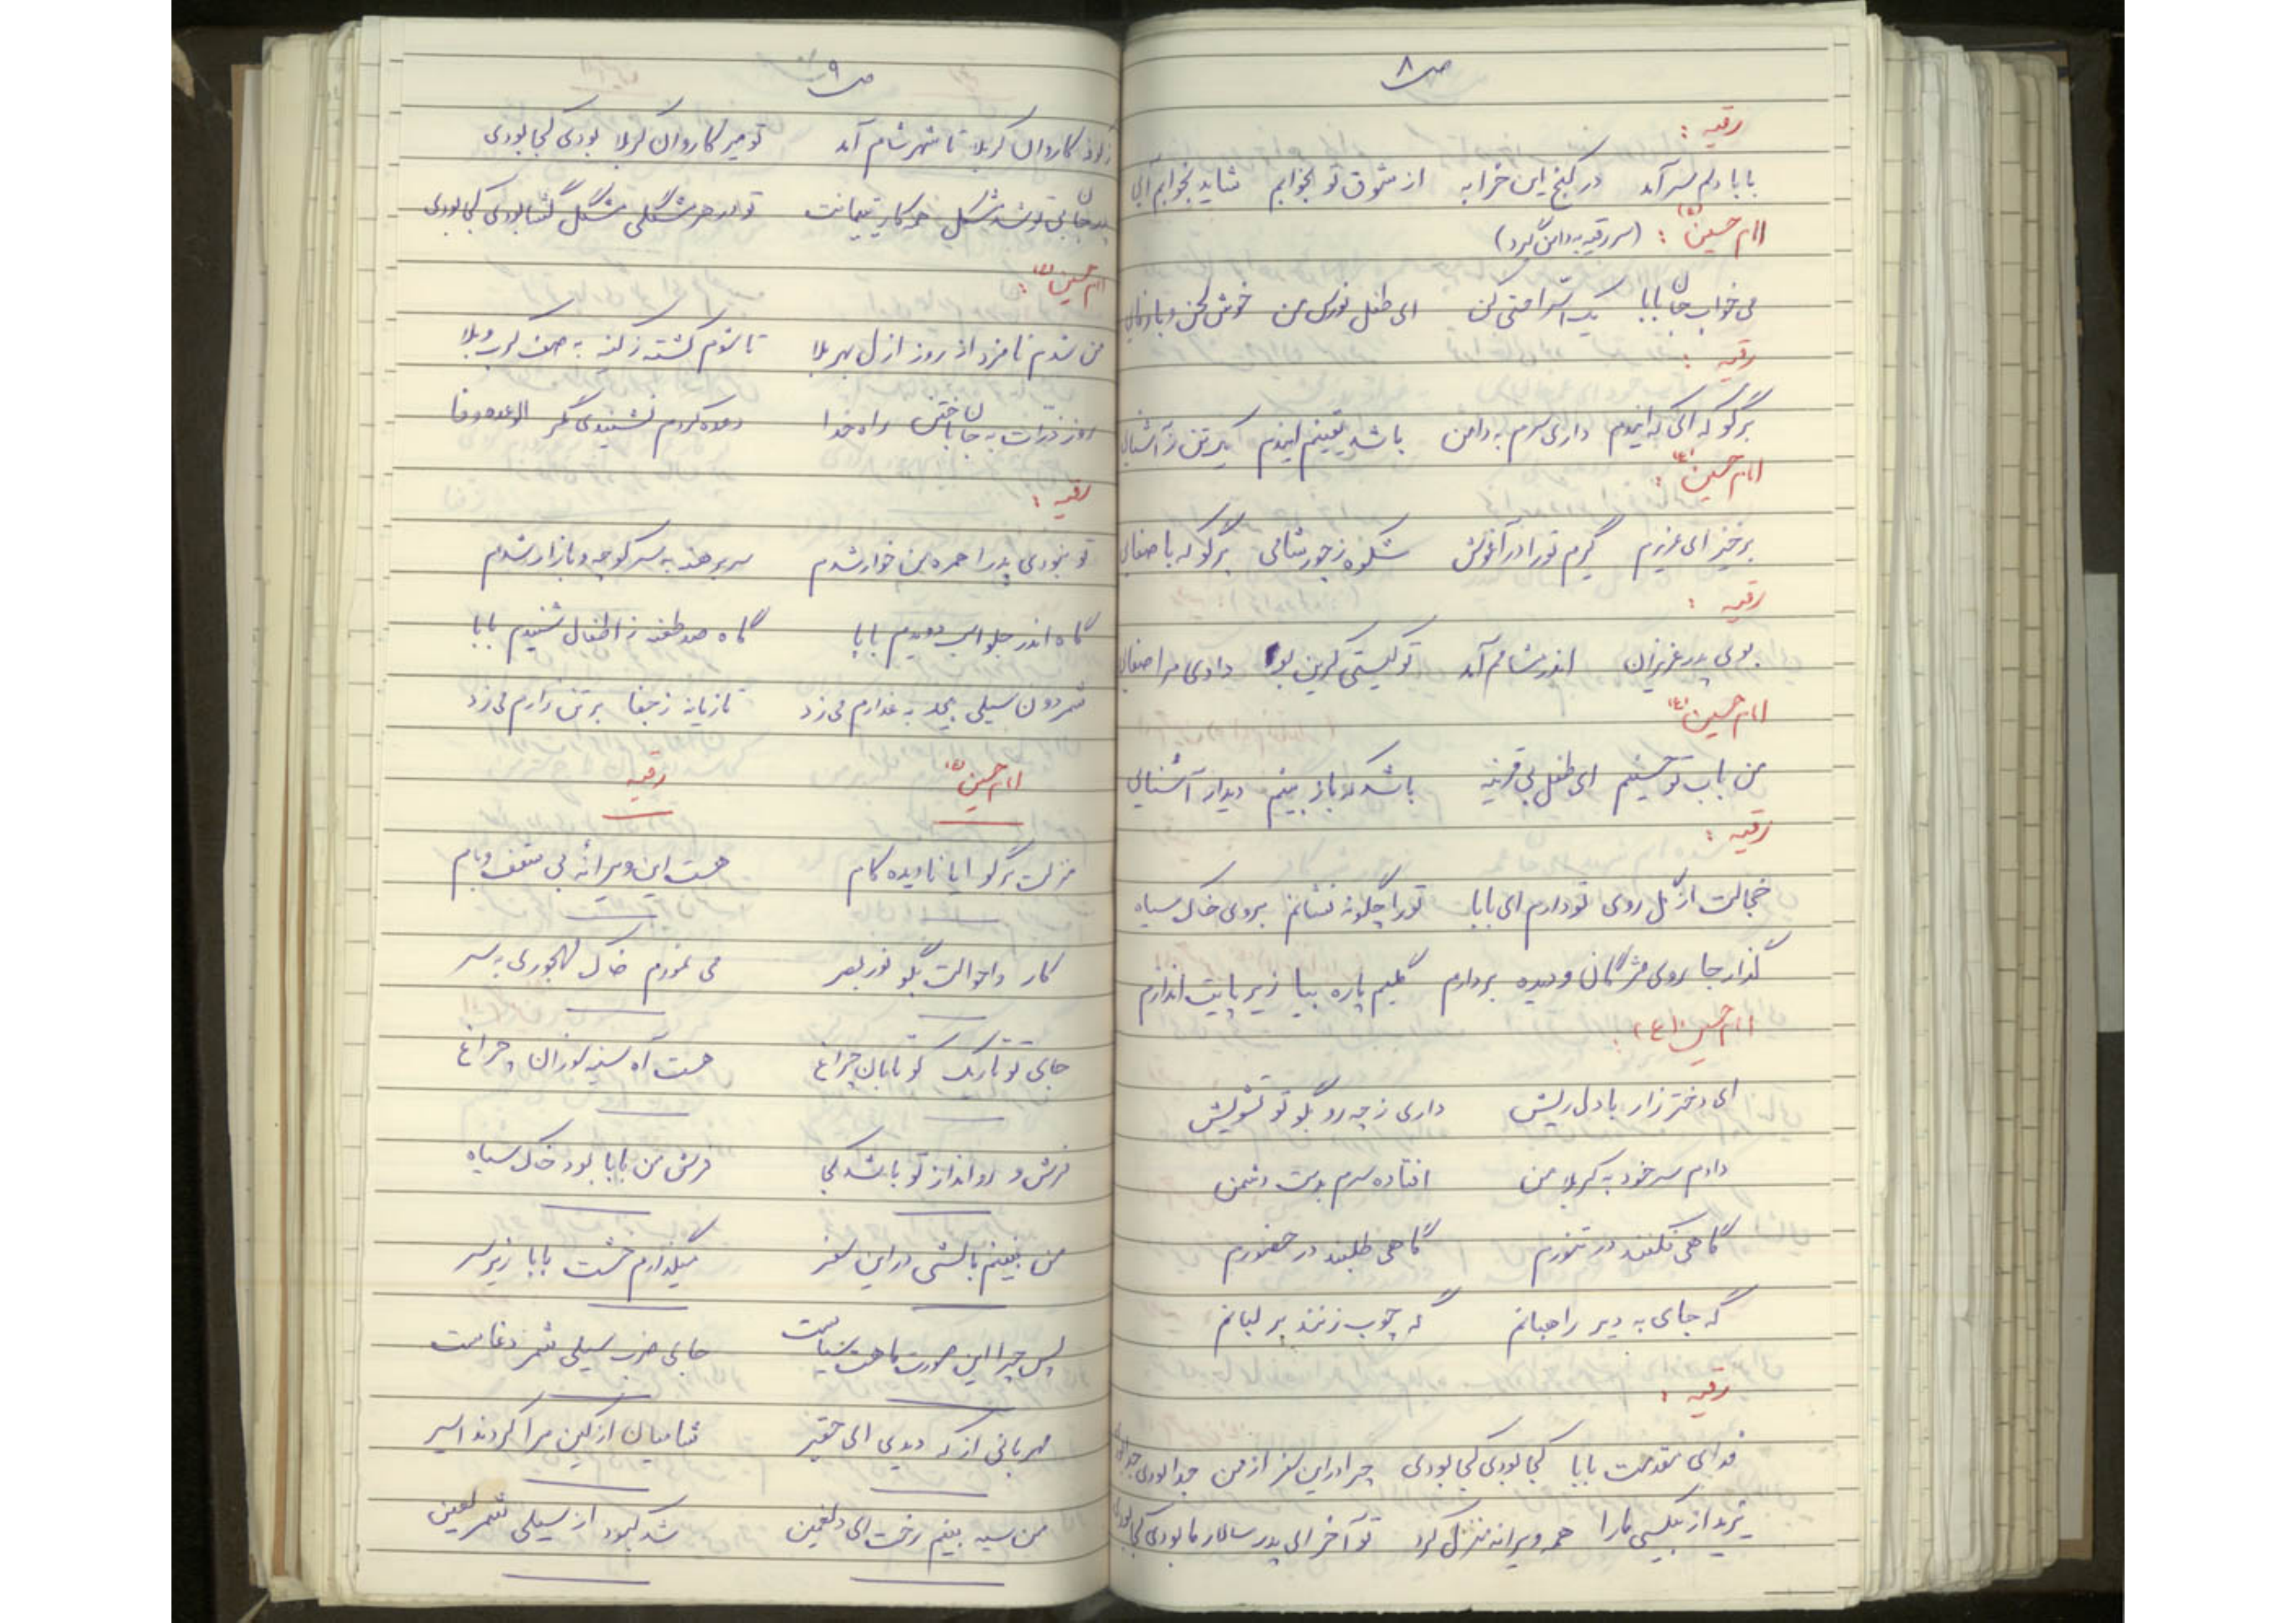 ص ۸
رقیه :
بابا دلم سر آمد در کنج این خرابه از شوق تو بخوابم شاید بخوابم آئی
امام حسین (ع) : (سر رقیه به دامن گیرد)
می خواب جان بابا یک استراحتی کن ای طفل نورس من خوش لحن و با
رقیه :
برگو که ای که ایندم داری سرم به دامن باشد یقینم ایندم آشنائی
امام حسین (ع) :
برخیز ای عزیزم گیرم تو را در آغوش شکوه ز جور شامی برگو که با صفائی
رقیه :
بوی پدر عزیزان اندر مشامم آمد تو کیستی کزین بو دادی مرا صفائی
امام حسین (ع)
من باب تو حسینم ای طفل بی قرینه باشد که باز بینم دیدار آشنائی
رقیه :
خجالت از گل روی تو دارم ای بابا تو را چگونه نشانم بروی خاک سیاه
گذار جا روی مژگان و دیده بردارم گلیم پاره بیا زیر پایت اندازم
امام حسین (ع) :
ای دختر زار با دل ریش داری ز چه رو بگو تو تشویش
دادم سر خود به کربلا من افتاده سرم بدست دشمن
گاهی فکنند در تنورم گاهی طلبند در حضورم
گه جای به دیر راهبانم گه چوب زنند بر لبانم
رقیه :
فدای مقدمت بابا کجا بودی کجا بودی چرا در این سفر از من جدا بودی جدا بودی
یزید از بیکسی ما را همه ویرانه منزل کرد تو آخر ای پدر سالار ما بودی کجا بودی
ص ۹
کاروان کربلا تا شهر شام آمد تو میر کاروان کربلا بودی کجا بودی
پدر جان بی تو شد مشکل همه کار یتیمانت تو در هر مشگلی مشگل گشا بودی کجا بودی
امام حسین (ع) :
من شدم نامزد از روز ازل بهر بلا تا شوم کشته ز کینه به صف کرب و بلا
روز ذرات به جان باختن راه خدا وعده کردم نشنیدی مگر الوعده وفا
رقیه :
تو نبودی پدرا همره من خوار شدم سر برهنه به سر کوچه و بازار شدم
گاه اندر جلو اسب دویدم بابا گاه صد طعنه ز اطفال شنیدم بابا
شمر دون سیلی بیحد به عذارم می زد تازیانه ز جفا بر تن زارم می زد
امام حسین (ع) رقیه
منزلت برگو ایا نادیده کام هست این ویرانه بی سقف و بام
کار و احوالت بگو نور بصر می نمودم خاک مهجوری به سر
جای تو تاریک کو تابان چراغ هست آه سینه سوزان چراغ
فرش و رو انداز تو باشد کجا فرش من بابا بود خاک سیاه
من نبینم بالشی در این سفر میگذارم خشت بابا زیر سر
پس چرا این صورت ماهت سیاست جای ضرب سیلی شمر دغاست
مهربانی از که دیدی ای حقیر شامیان از کین مرا کردند اسیر
من سیه بینم رخت ای دلغمین شد کبود از سیلی شمر لعین